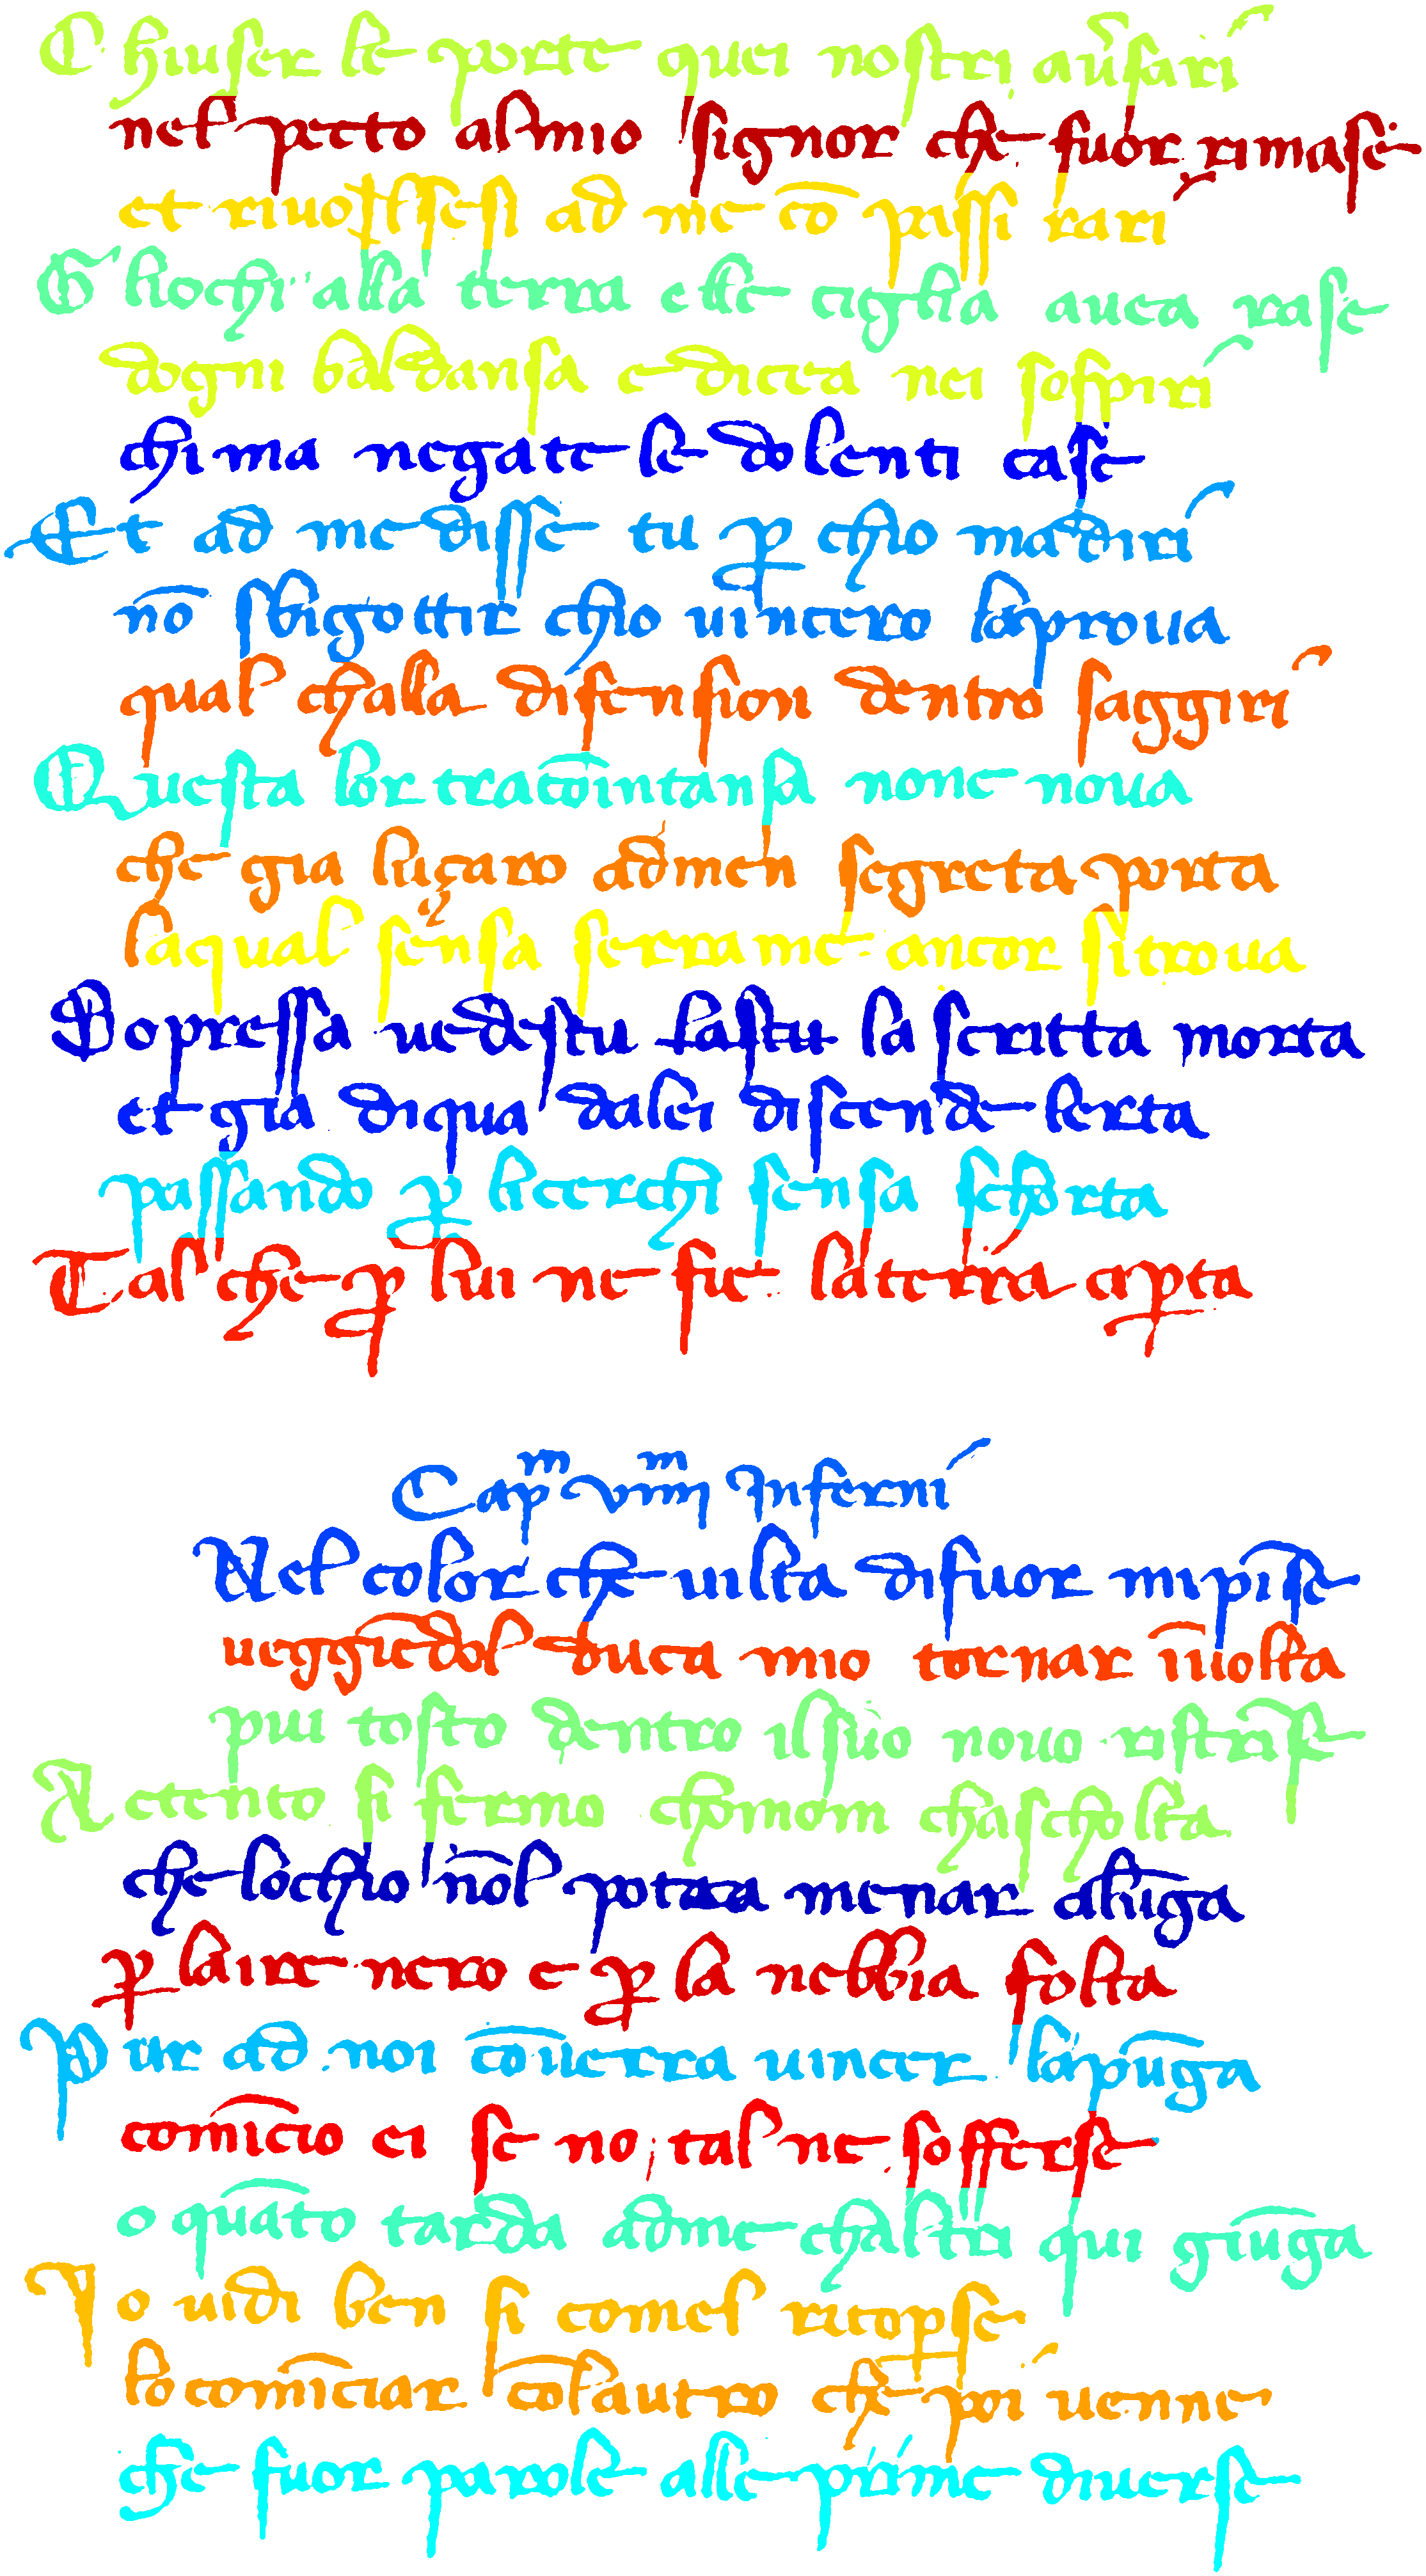 Chiuser le porte quei nostri au̅sari
nel pecto al mio signor che fuor rimase
et riuolsesi ad me co̅ passi rari
Gliochi alla terra elle ciglia auea rase
dogni baldansa e dicea nei sospiri
chi ma negate le dolenti case
Et ad me disse tu ꝑ chio madiri
no̅ sbigottir chio uincero laproua
qual challa difension dentro saggiri
Questa lor traco̅intansa none noua
che gia luçaro admen segreta porta
laqual sensa serrame ancor sitroua
Dopressa uedestu la scritta morta
et gia diqua dalei discende lerta
passando ꝑ licerchi sensa schorta
Tal che ꝑ lui ne fie laterra aꝑta
Capm viiiim Inferni
Nel color che uilta difuor mipi̅se
ueggie̅dol duca mio tornar i̅uolta
piu tosto dentro ilsuo nouo ristri̅se
Actento si fermo chomom chascholta
che lochio no̅l potea menar alu̅ga
ꝑ laire nero e ꝑ la nebbia folta
Pur ad noi co̅uerra uincer lapu̅ga
comi̅cio ei se no tal ne sofferse
o qua̅to tarda adme chaltri qui giu̅ga
Io uidi ben si comel ricoꝑse
lo comi̅ciar co̅lautro che poi uenne
che fuor parole alle prime diuerse